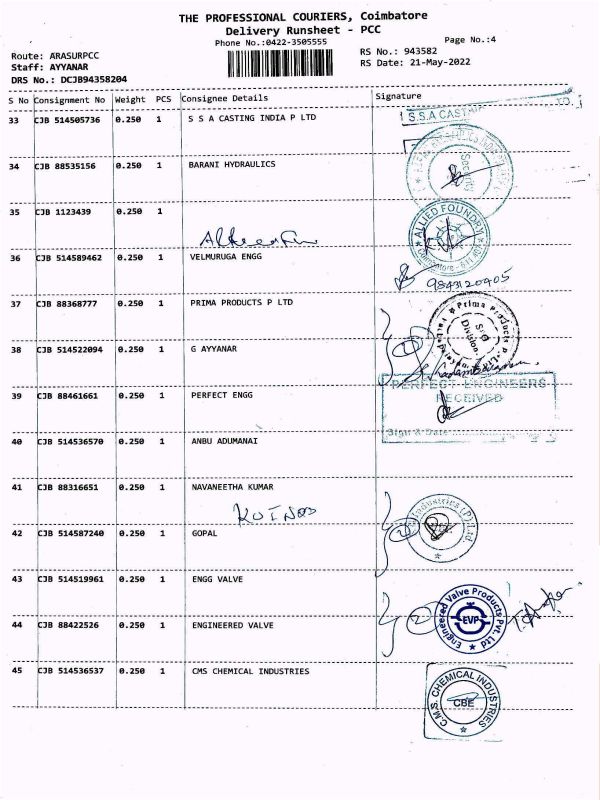 THE PROFESSIONAL COURIERS, Coimbatore
Delivery Runsheet - PCC
Phone No.:0422-3505555
Page No.:4
Route: ARASURPCC
RS No.: 943582
Staff: AYYANAR
RS Date: 21-May-2022
DRS No.: DCJB94358204
S No Consignment No Weight PCS Consignee Details Signature
33 CJB 514505736 0.250 1 S S A CASTING INDIA P LTD
S.S.A CASTING
34 CJB 88535156 0.250 1 BARANI HYDRAULICS
Security
35 CJB 1123439 0.250 1
ALLIED FOUNDRY
36 CJB 514589462 0.250 1 VELMURUGA ENGG
9843120405
37 CJB 88368777 0.250 1 PRIMA PRODUCTS P LTD
Prima Products P. Ltd
Division
38 CJB 514522094 0.250 1 G AYYANAR
39 CJB 88461661 0.250 1 PERFECT ENGG
PERFECT ENGINEERS
RECEIVED
Sign & Date
40 CJB 514536570 0.250 1 ANBU ADUMANAI
41 CJB 88316651 0.250 1 NAVANEETHA KUMAR
Industries (P) Ltd.
42 CJB 514587240 0.250 1 GOPAL
2
43 CJB 514519961 0.250 1 ENGG VALVE
44 CJB 88422526 0.250 1 ENGINEERED VALVE
2
Engineered Valve Products Pvt. Ltd
EVP
45 CJB 514536537 0.250 1 CMS CHEMICAL INDUSTRIES
C.M.S. CHEMICAL INDUSTRIES
CBE